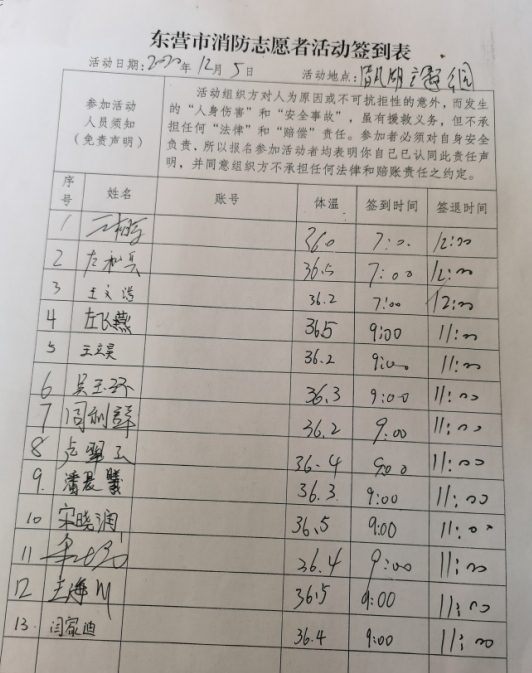 东营市消防志愿者活动签到表
活动日期：2020年12月5日 活动地点：
参加活动人员须知（免责声明）
活动组织方对人为原因或不可抗拒性的意外，而发生
的“人身伤害”和“安全事故”，虽有援救义务，但不承
担任何“法律”和“赔偿”责任。参加者必须对自身安全
负责，所以报名参加活动者均表明你自己已认同此责任声
明，并同意组织方不承担任何法律和赔账责任之约定。
序号 姓名 账号 体温 签到时间 签退时间
1 36.0 7:00 12:00
2 左和兵 36.5 7:00 12:00
3 王文浩 36.2 7:00 12:00
4 左飞燕 36.5 9:00 11:00
5 王立昊 36.2 9:00 11:00
6 吴玉环 36.3 9:00 11:00
7 周利群 36.2 9:00 11:00
8 卢翠玉 36.4 9:00 11:00
9. 潘晨曦 36.3 9:00 11:00
10 宋晓润 36.5 9:00 11:00
11 36.4 9:00 11:00
12 王海川 36.5 9:00 11:00
13. 闫家迪 36.4 9:00 11:00